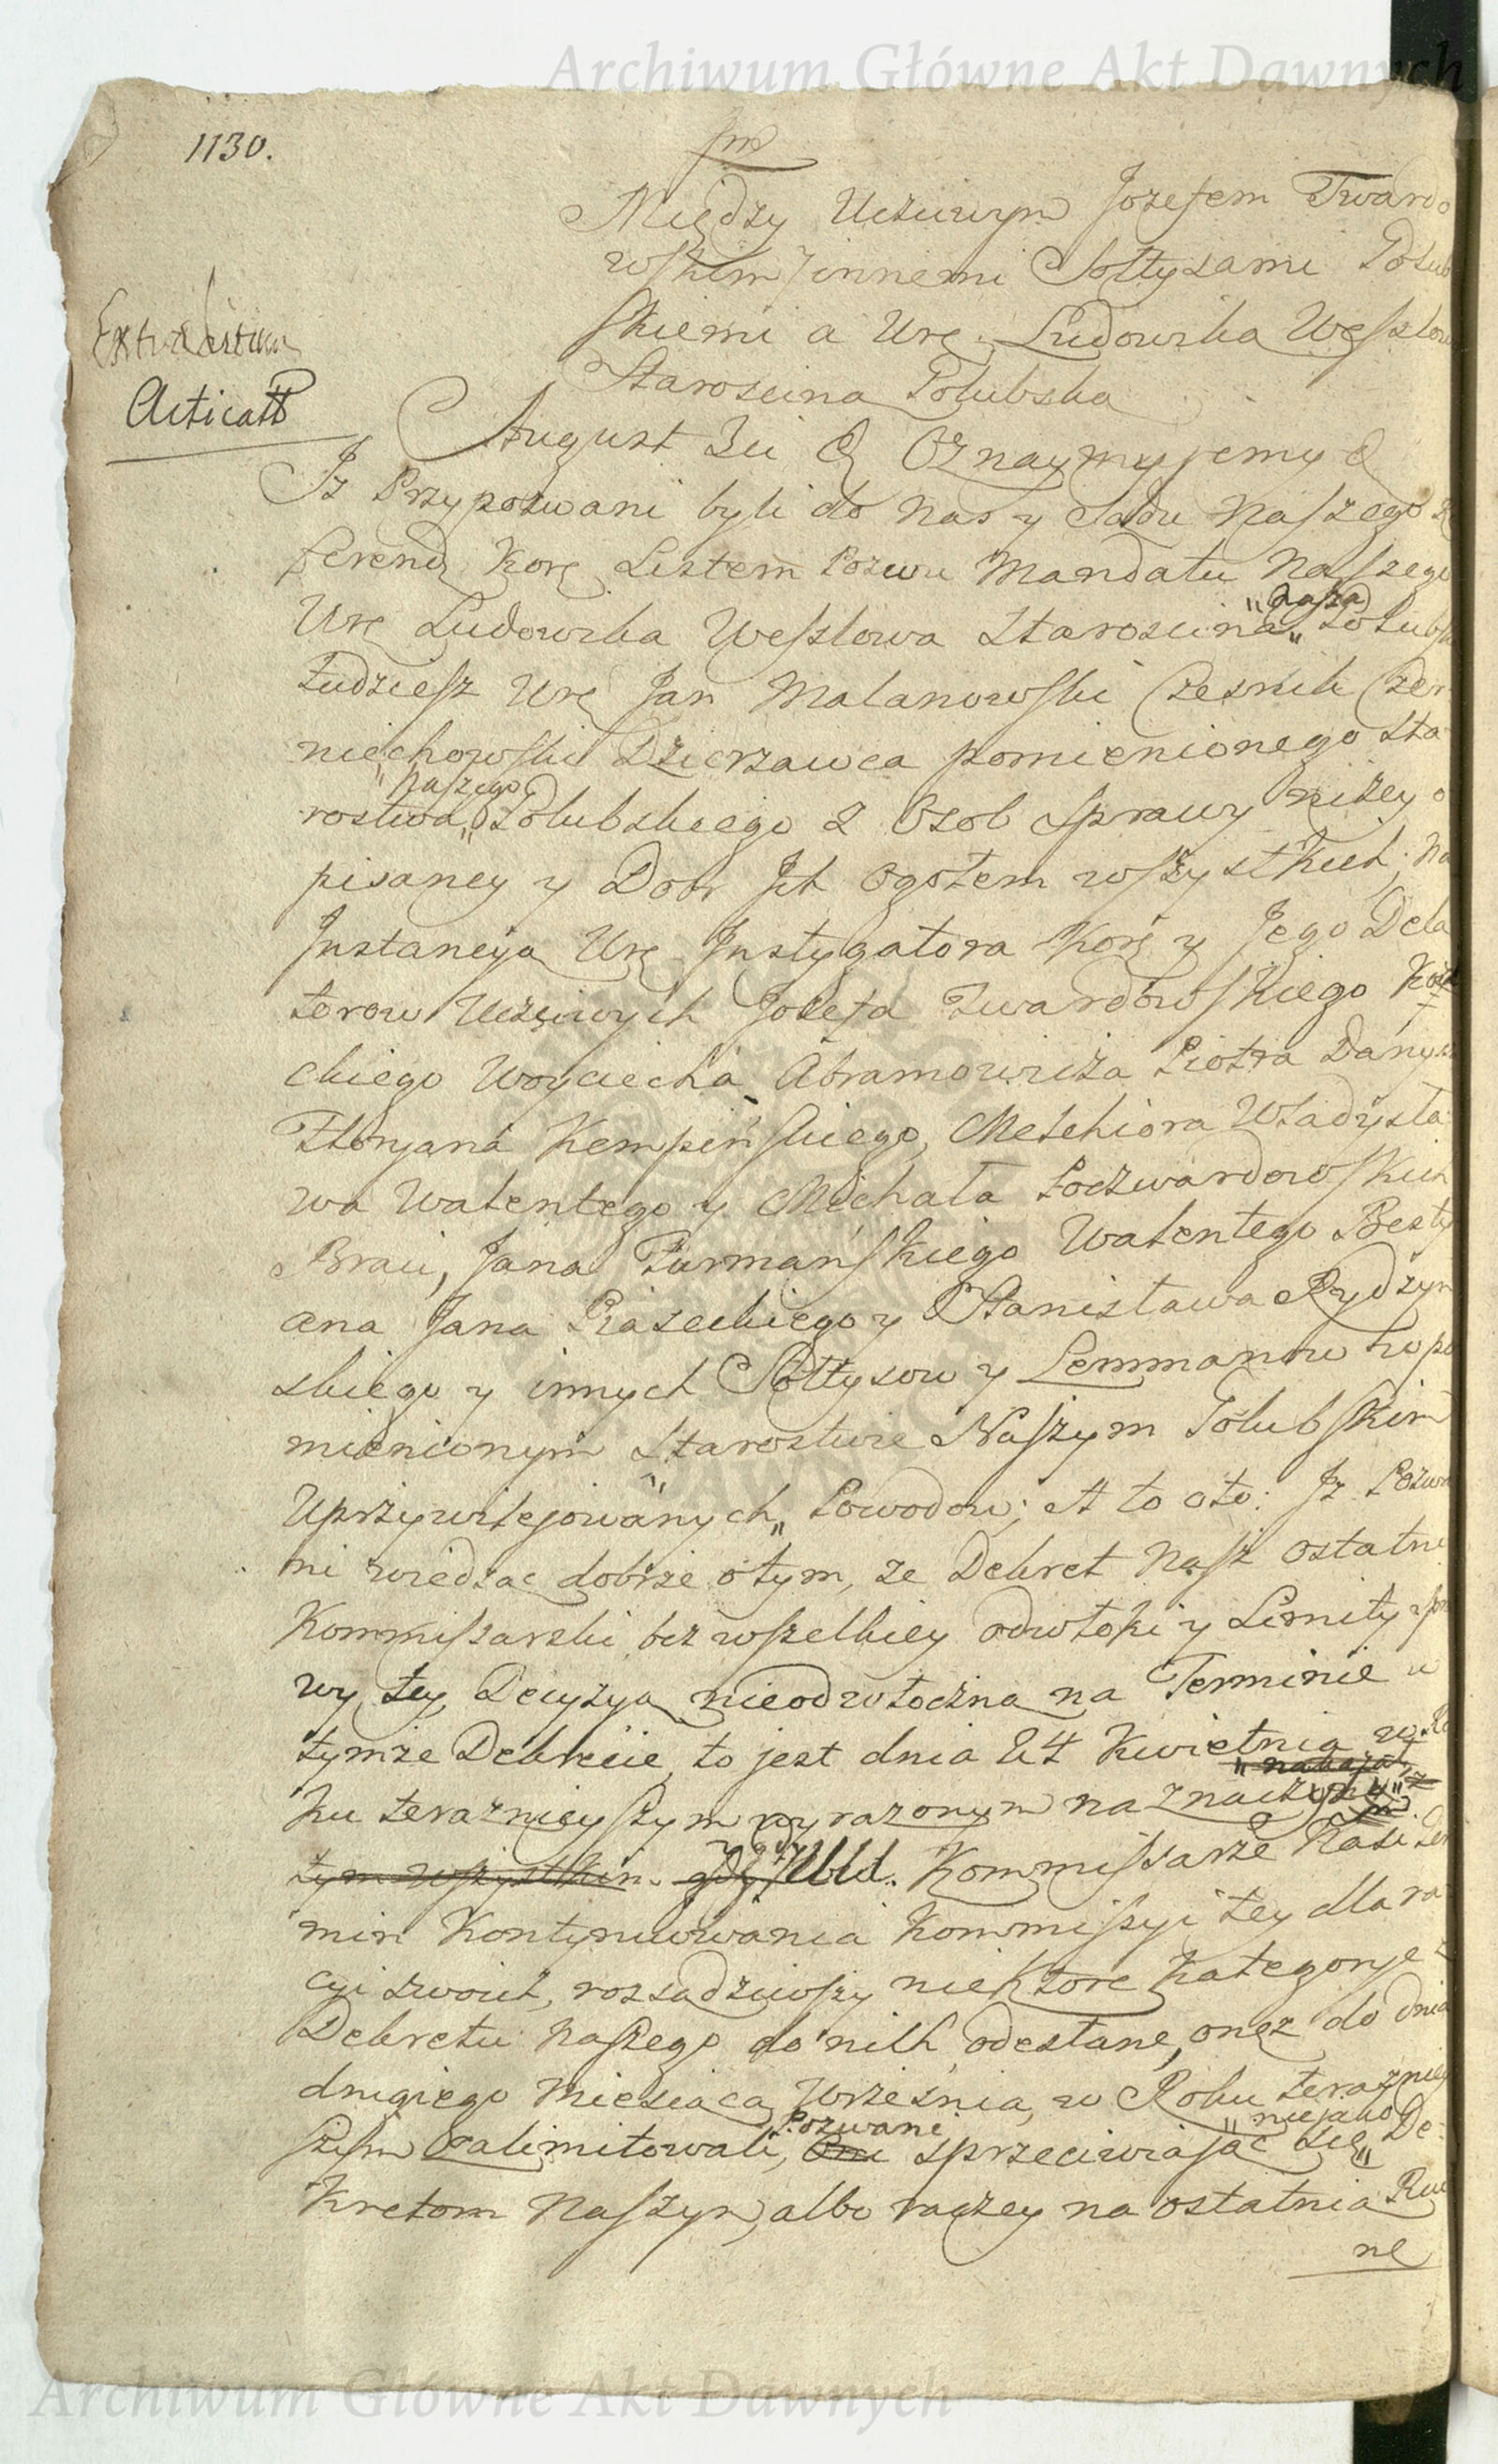 Archiwum Główne Akt Dawnych
1130.
Między Uczciwym Jozefem Twardo
wskim y innemi Sołtysami
skiemi a Urę Ludowika Wesslow
Staroscina Golubska
Acticatt
August III &c Oznaymujemy &c
Iż Przypozwani byli do nas y Sądu Naszego
ferend. Korę Listem Pozwu Mandatu Naszego
Urę Ludowika Wesslowa Staroscina „nasza„ Golubsk
Tudziesz Urę Jan Malanowski Czesnik Czer
niechowski Dzierzawca pomienionego Sta
rostwa „Naszego„ Golubskiego z Osob Sprawy niżey o
pisaney y Dobr Ich ogołem wszystkich; na
Instancyą Urę Instygatora Korę y Jego Dela
torow Uczciwych Jozefa Twardowskiego
ckiego Woyciecha Abramowicza Piotra
Floryana Kempińskiego, Melchiora Władysła
wa Walentego y Michała Podzwardowskich
Braci, Jana Furmańskiego Walentego Besty
ana Jana Piaseckiego y Stanisława Rydzyn
skiego y innych Sołtysow y Lemmanow w po
mienionym Starostwie Naszym Golubskim
Uprzywilejowanych„ Powodow; A to oto: Iż Pozwa
ni wiedząc dobrze o tym, ze Dekret Nasz ostatni
Kommissarski bez wszelkiey odwłoki y Limity spra
wy tey, Decyzyą nieodwłoczną na Terminie w
tymże Dekrecie, to jest dnia 24 Kwietnia w Ro
ku teraznieyszym wyrazonym naznaczył
tym wszystkim. gdy Kommissarze Nasi Ter
min Kontynuowania Kommissyi tey dla ra
cyi swoich, rozsądziwszy niektore Kategorye z
Dekretu Naszego do nich odesłane, onęż do dnia
drugiego Miesiąca Wrzesnia, w Roku teraznieÿ
szym zalimitowali, Pozwani sprzeciwiając się „niejako„ De
kretom Naszym, albo raczey na ostatnią Rui
nę
Archiwum Główne Akt Dawnych